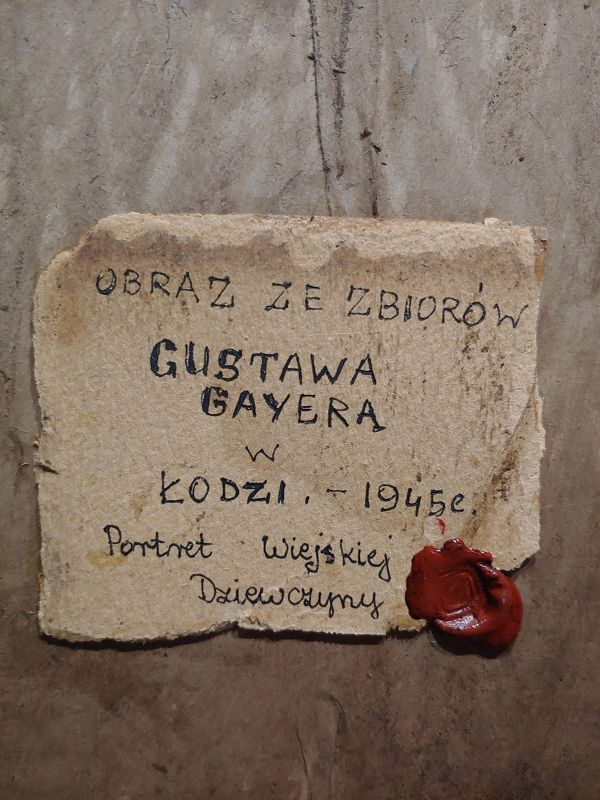 OBRAZ ZE ZBIORÓW
GUSTAWA
GAYERA
w
ŁODZI. - 1945e.
Portret Wiejskiej
Dziewczyny